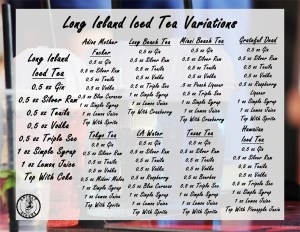 Long Island Iced Tea Variations
Long Island
Iced Tea
0.5 oz Gin
0.5 oz Silver Rum
0.5 oz Tequila
0.5 oz Vodka
0.5 oz Triple Sec
1 oz Simple Syrup
1 oz Lemon Juice
Top With Coke
Adios Mother
Fucker
0.5 oz Gin
0.5 oz Silver Rum
0.5 oz Vodka
0.5 oz Blue Curacao
1 oz Simple Syrup
1 oz Lemon Juice
Top With Sprite
Long Beach Tea
0.5 oz Gin
0.5 oz Silver Rum
0.5 oz Vodka
0.5 oz Triple Sec
1 oz Simple Syrup
1 oz Lemon Juice
Top With Cranberry
Miami Beach Tea
0.5 oz Gin
0.5 oz Silver Rum
0.5 oz Vodka
0.5 oz Peach Liqueur
1 oz Simple Syrup
1 oz Lemon Juice
Top With Cranberry
Grateful Dead
0.5 oz Gin
0.5 oz Silver Rum
0.5 oz Vodka
0.5 oz Raspberry
Liqueur
1 oz Simple Syrup
1 oz Lemon Juice
Top With Sprite
Tokyo Tea
0.5 oz Gin
0.5 oz Silver Rum
0.5 oz Vodka
0.5 oz Midori Melon
1 oz Simple Syrup
1 oz Lemon Juice
Top With Sprite
LA Water
0.5 oz Gin
0.5 oz Silver Rum
0.5 oz Vodka
0.5 oz Raspberry
0.5 oz Blue Curacao
1 oz Simple Syrup
1 oz Lemon Juice
Top With Sprite
Texas Tea
0.5 oz Gin
0.5 oz Silver Rum
0.5 oz Vodka
0.5 oz Bourbon
1 oz Simple Syrup
1 oz Lemon Juice
Top With Sprite
Hawaiian
Iced Tea
0.5 oz Gin
0.5 oz Silver Rum
0.5 oz Vodka
0.5 oz Triple Sec
1 oz Simple Syrup
1 oz Lemon Juice
Top With Pineapple Juice